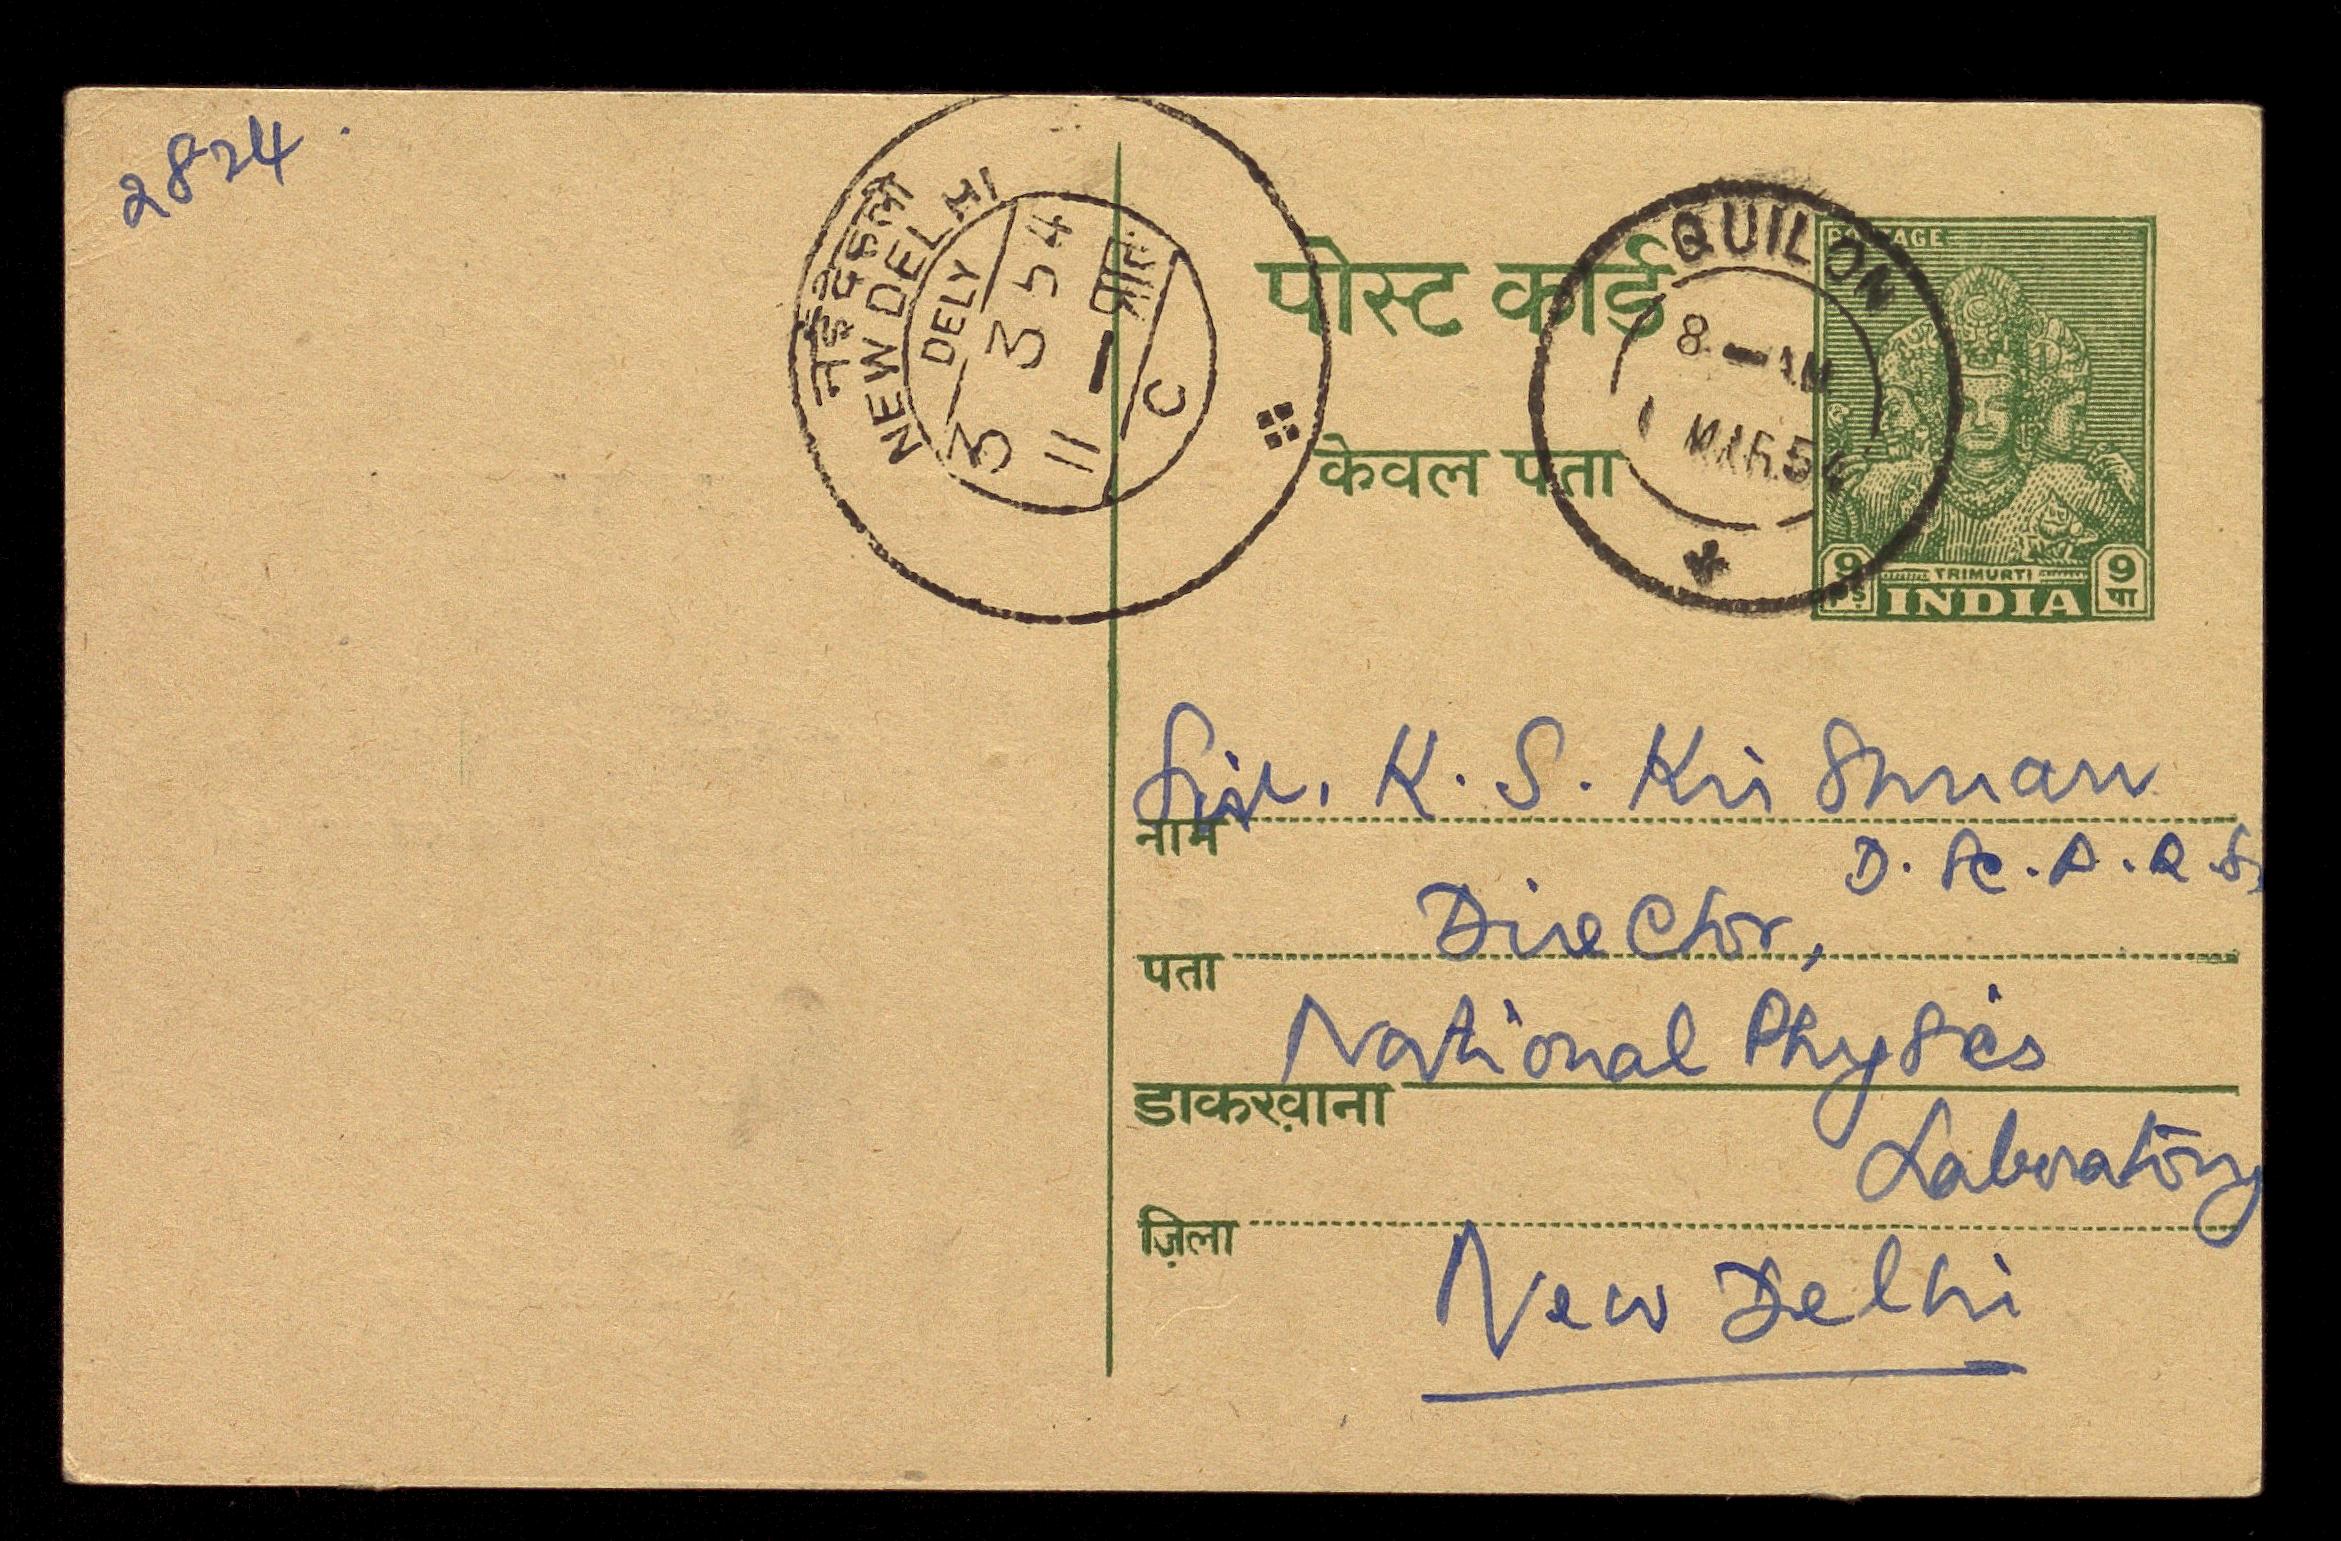 2824.
नई देहली
NEW DELHI
DELY
3 3 54
11 - प्रातः
C
पोस्ट कार्ड
केवल पता
QUILON
8 - AM
1 MAR 54
POSTAGE
9 Ps
TRIMURTI
INDIA
9 पा
Sir. K. S. Krishnan
नाम
D. Sc.
Director,
पता
National Physics
डाकख़ाना
Laboratory
ज़िला
New Delhi